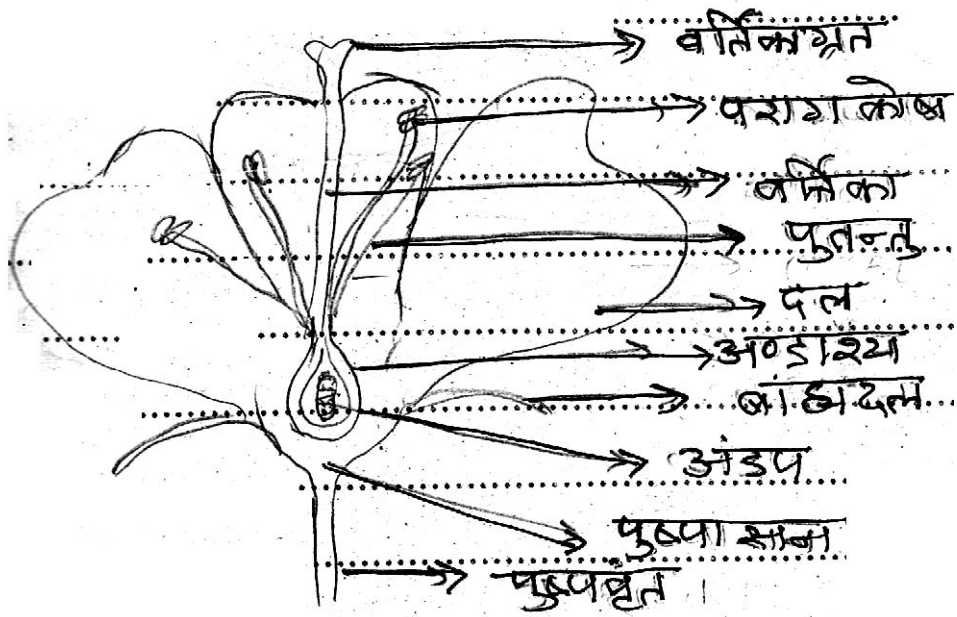 वर्तिकाग्रत
परागकोष
वर्तिका
पुतन्तु
दल
अण्डाश्य
बाह्यदल
अंडप
पुष्पासान
पुष्पवृंत